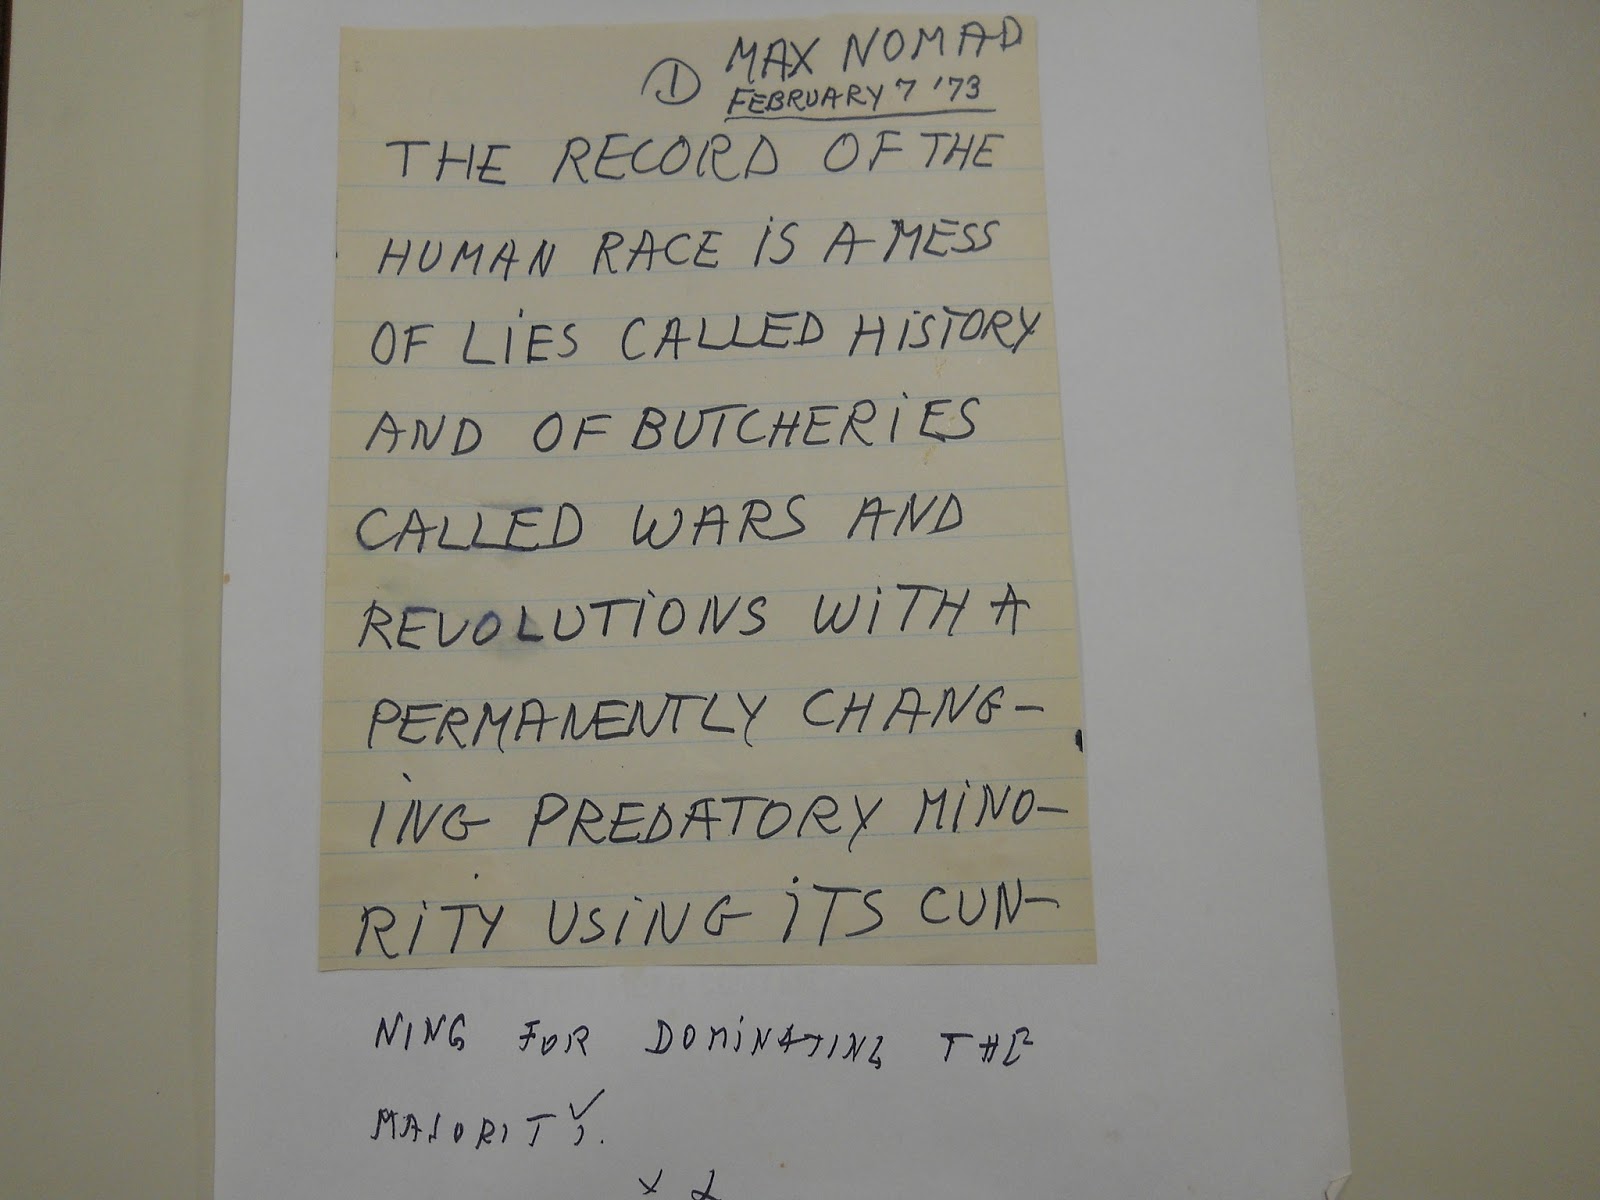 ① MAX NOMAD
FEBRUARY 7 '73
THE RECORD OF THE
HUMAN RACE IS A MESS
OF LIES CALLED HISTORY
AND OF BUTCHERIES
CALLED WARS AND
REVOLUTIONS WITH A
PERMANENTLY CHANG-
ING PREDATORY MINO-
RITY USING ITS CUN-
NING FOR DOMINATING THE
MAJORITY.